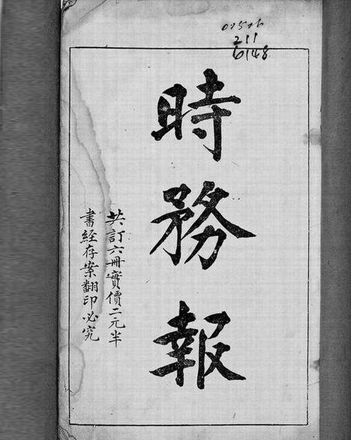 211
6148
時務報
共訂六冊實價二元半
書經存案翻印必究